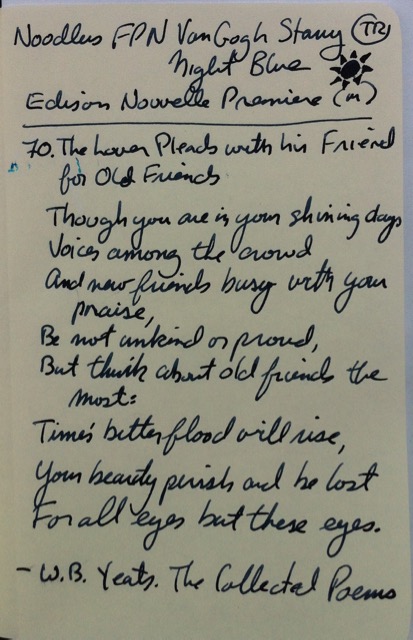 Noodlers FPN Van Gogh Starry TR
Night Blue
Edison Nouvelle Premiere (m)
70. The Lover Pleads with his Friend
for Old Friends
Though you are in your shining days
Voices among the crowd
And new friends busy with your
praise,
Be not unkind or proud,
But think about old friends the
most:
Time's bitter flood will rise,
Your beauty perish and be lost
For all eyes but these eyes.
- W.B. Yeats. The Collected Poems